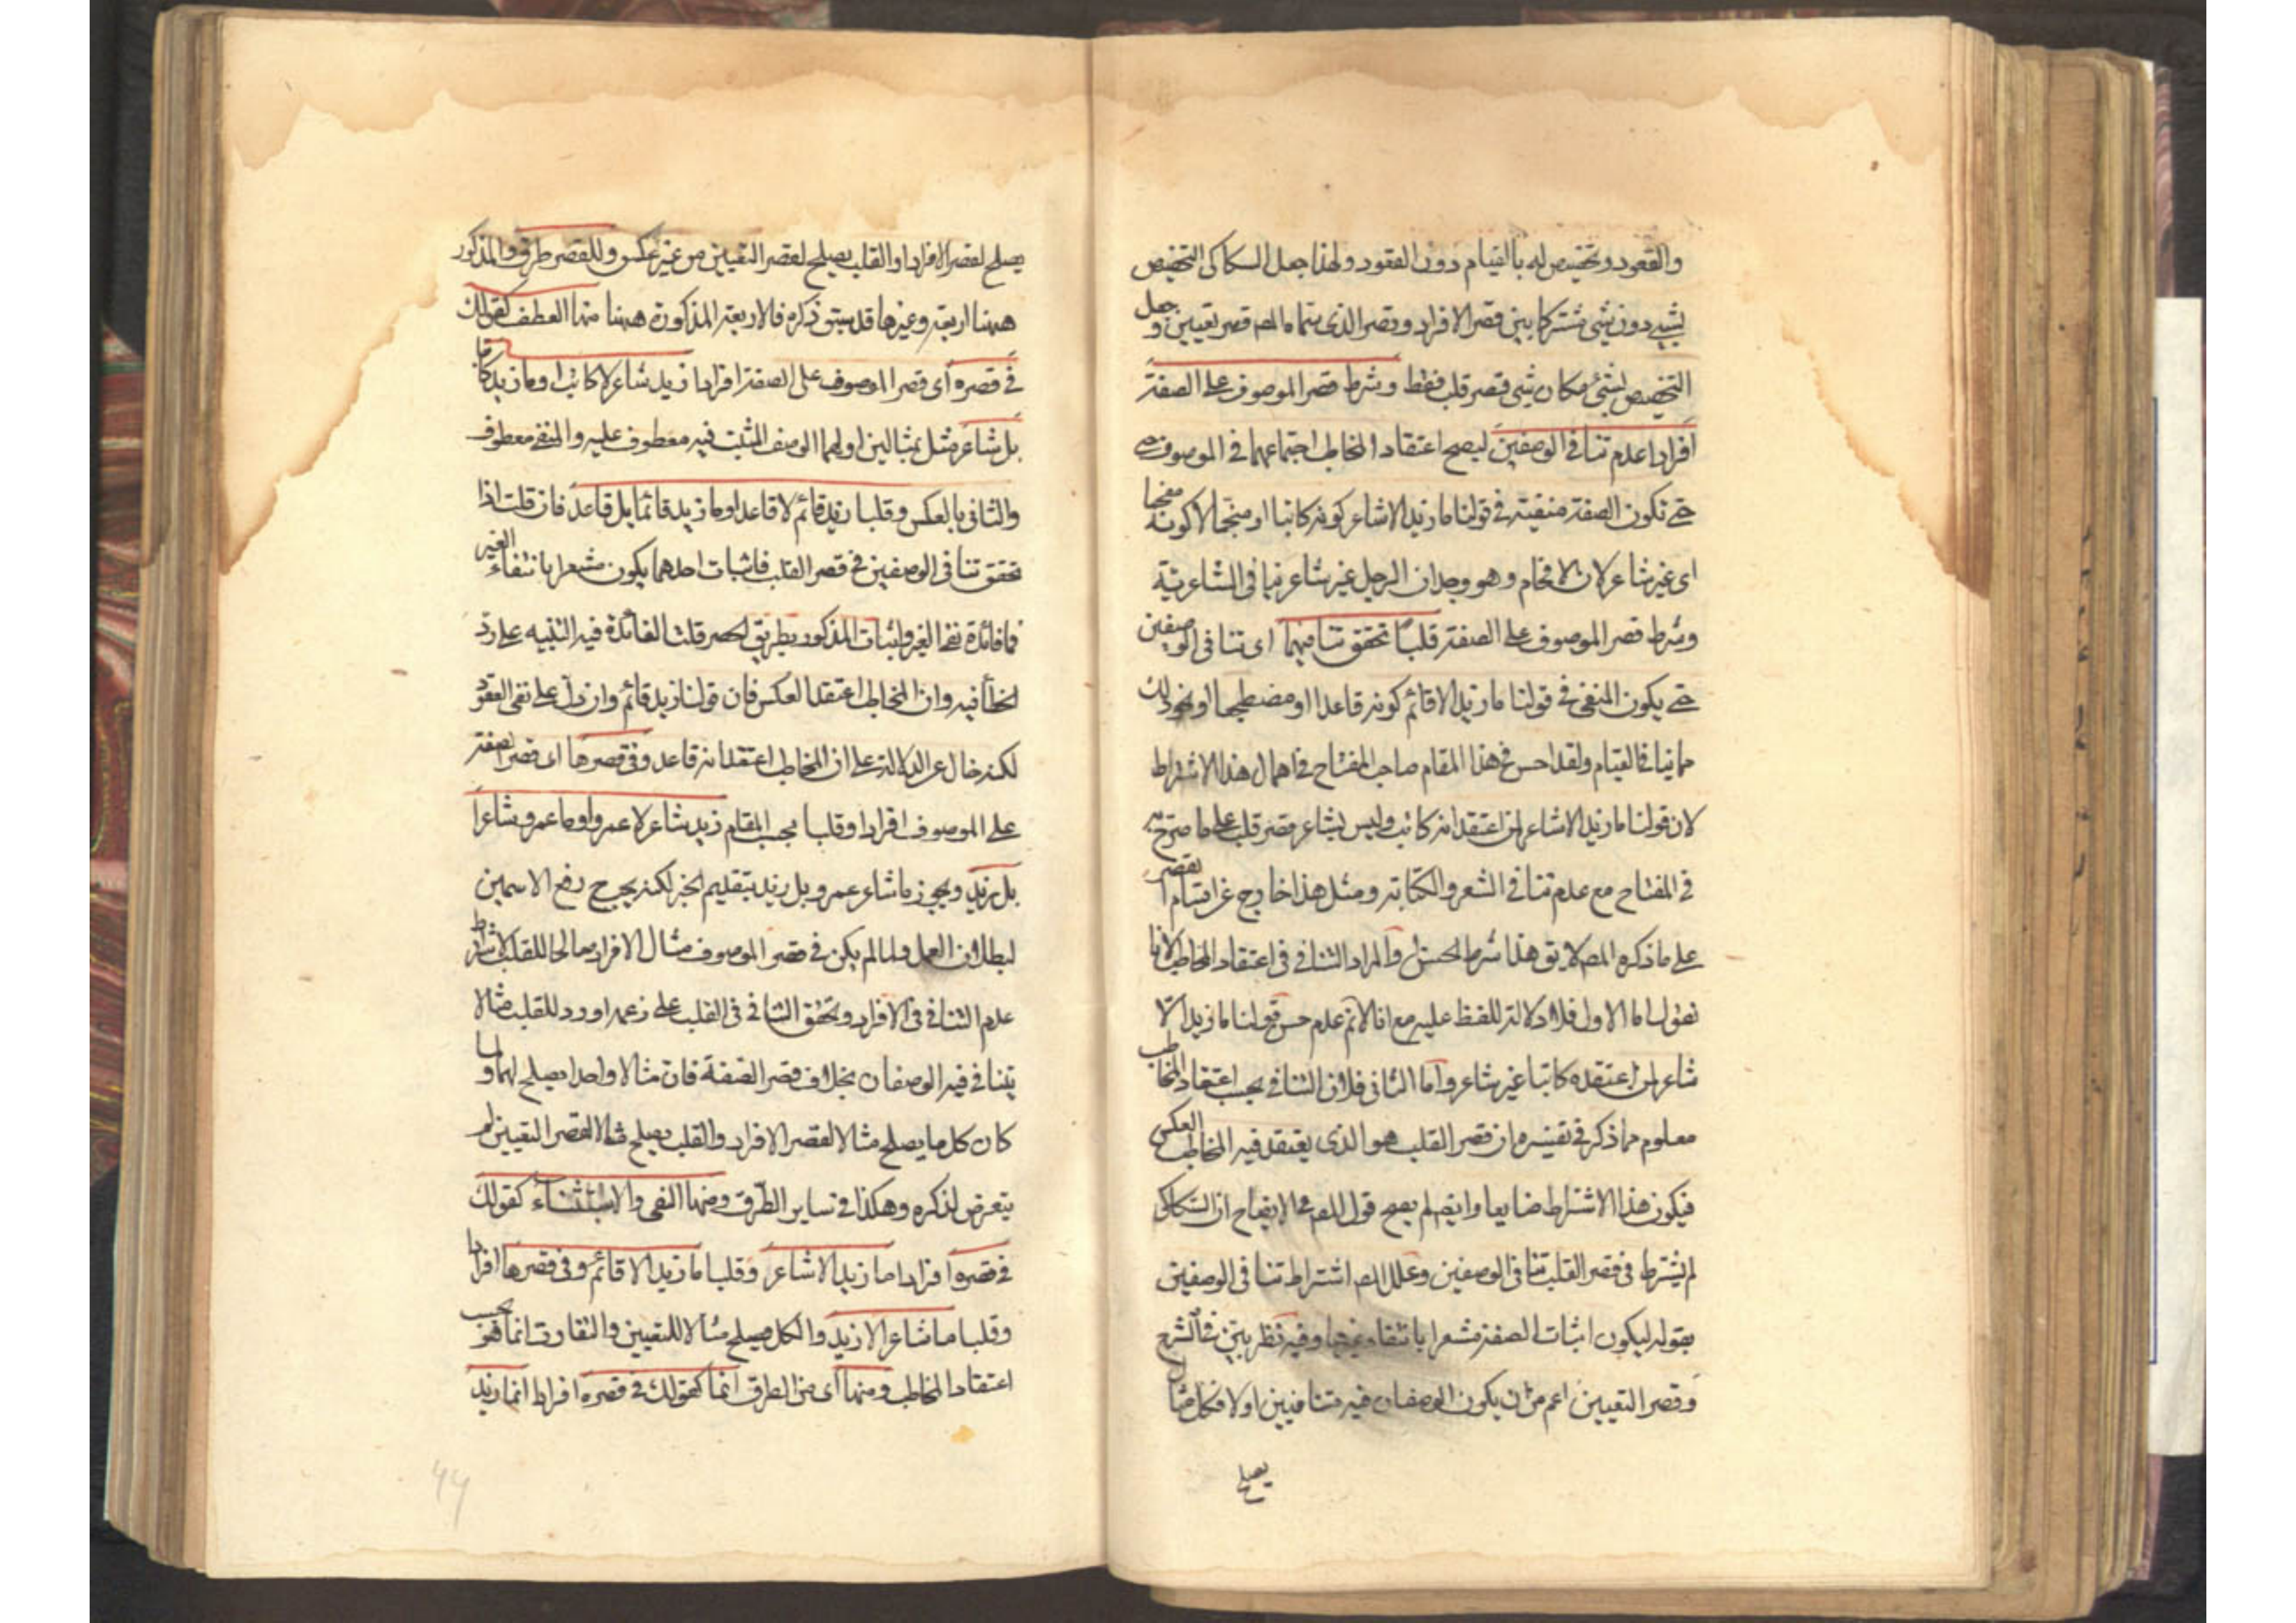 والقعود وتخصيص له بالقيام دون القعود ولهذا جعل السكاكى التخصيص
بشيء دون شئ مشتركا بين قصر الافراد وقصر الذى سماه المص قصر تعيين وجعل
التخصيص بشئ مكان شئ قصر قلب فقط وشرط قصر الموصوف على الصفة
افرادا عدم تنافى الوصفين ليصح اعتقاد المخاطب اجتماعهما فى الموصوف
حتى تكون الصفة منفية فى قولنا ما زيد الا شاعر كونه كاتبا او منجما لا كونه مفحما
اى غير شاعر لان الافحام وهو وجدان الرجل غير شاعر ينافى الشاعرية
وشرط قصر الموصوف على الصفة قلبا تحقق تنافيهما اى تنافى الوصفين
حتى يكون المنفى فى قولنا ما زيد الا قائم كونه قاعدا او مضطجعا او نحو ذلك
مما ينافى القيام ولقد احسن فى هذا المقام صاحب المفتاح فى اهمال هذا الاشتراط
لان قولنا ما زيد الا شاعر لمن اعتقد انه كاتب وليس بشاعر قصر قلب على ما صرح به
فى المفتاح مع عدم تنافى الشعر والكتابة ومثل هذا خارج عن اقسام القصر
على ما ذكره المص لا يق هذا شرط الحسن او المراد التنافى فى اعتقاد المخاطب لانا
نقول اما الاول فلا دلالة للفظ عليه مع انا لانم عدم حسن قولنا ما زيد الا
شاعر لمن اعتقده كاتبا غير شاعر واما الثانى فلان التنافى بحسب اعتقاد المخاطب
معلوم مما ذكر فى تفسيره ان قصر القلب هو الذى يعتقد فيه المخاطب العكس
فيكون هذا الاشتراط ضايعا وايضا لم يصح قول المص فى الايضاح ان السكاكى
لم يشترط فى قصر القلب تنافى الوصفين وعلل المص اشتراط تنافى الوصفين
بقوله ليكون اثبات الصفة مشعرا بانتفاء غيرها وفيه نظر بين فى الشرح
وقصر التعيين اعم من ان يكون الوصفان فيه متنافيين اولا فكل مثال
يصلح
يصلح لقصر الافراد او القلب يصلح لقصر التعيين من غير عكس وللقصر طرق والمذكور
ههنا اربعة وغيرها قد سبق ذكره فالاربعة المذكورة ههنا منها العطف كقولك
فى قصره اى قصر الموصوف على الصفة افرادا زيد شاعر لا كاتب او ما زيد كاتبا
بل شاعر مثل بمثالين اولهما الوصف المثبت فيه معطوف عليه والمنفى معطوف
والثانى بالعكس وقلبا زيد قائم لا قاعد او ما زيد قائما بل قاعد فان قلت اذا
تحقق تنافى الوصفين فى قصر القلب فاثبات احدهما يكون مشعرا بانتفاء الغير
فما فائدة نفى الغير واثبات المذكور بطريق الحصر قلت الفائدة فيه التنبيه على رد
الخطأ فيه وان المخاطب اعتقد العكس فان قولنا زيد قائم وان دل على نفى القعود
لكنه خال عن الدلالة على ان المخاطب اعتقد انه قاعد وفى قصرها اى قصر الصفة
على الموصوف افرادا وقلبا بحسب المقام زيد شاعر لا عمرو او ما عمرو شاعرا
بل زيد ويجوز ما شاعر عمرو بل زيد بتقديم الخبر لكنه يجب ح رفع الاسمين
لبطلان العمل ولما لم يكن فى قصر الموصوف مثال الافراد صالحا للقلب لاشتراط
عدم التنافى فى الافراد وتحقق التنافى فى القلب على زعمه اورد للقلب مثالا
يتنافى فيه الوصفان بخلاف قصر الصفة فان مثالا واحدا يصلح لهما ولما
كان كل ما يصلح مثالا لقصر الافراد والقلب يصلح مثالا لقصر التعيين لم
يتعرض لذكره وهكذا فى ساير الطرق ومنها النفى والاستثناء كقولك
فى قصره افرادا ما زيد الا شاعر وقلبا ما زيد الا قائم وفى قصرها افرادا
وقلبا ما شاعر الا زيد والكل يصلح مثالا للتعيين والتفاوت انما هو بحسب
اعتقاد المخاطب ومنها اى من الطرق انما كقولك فى قصره افرادا انما زيد